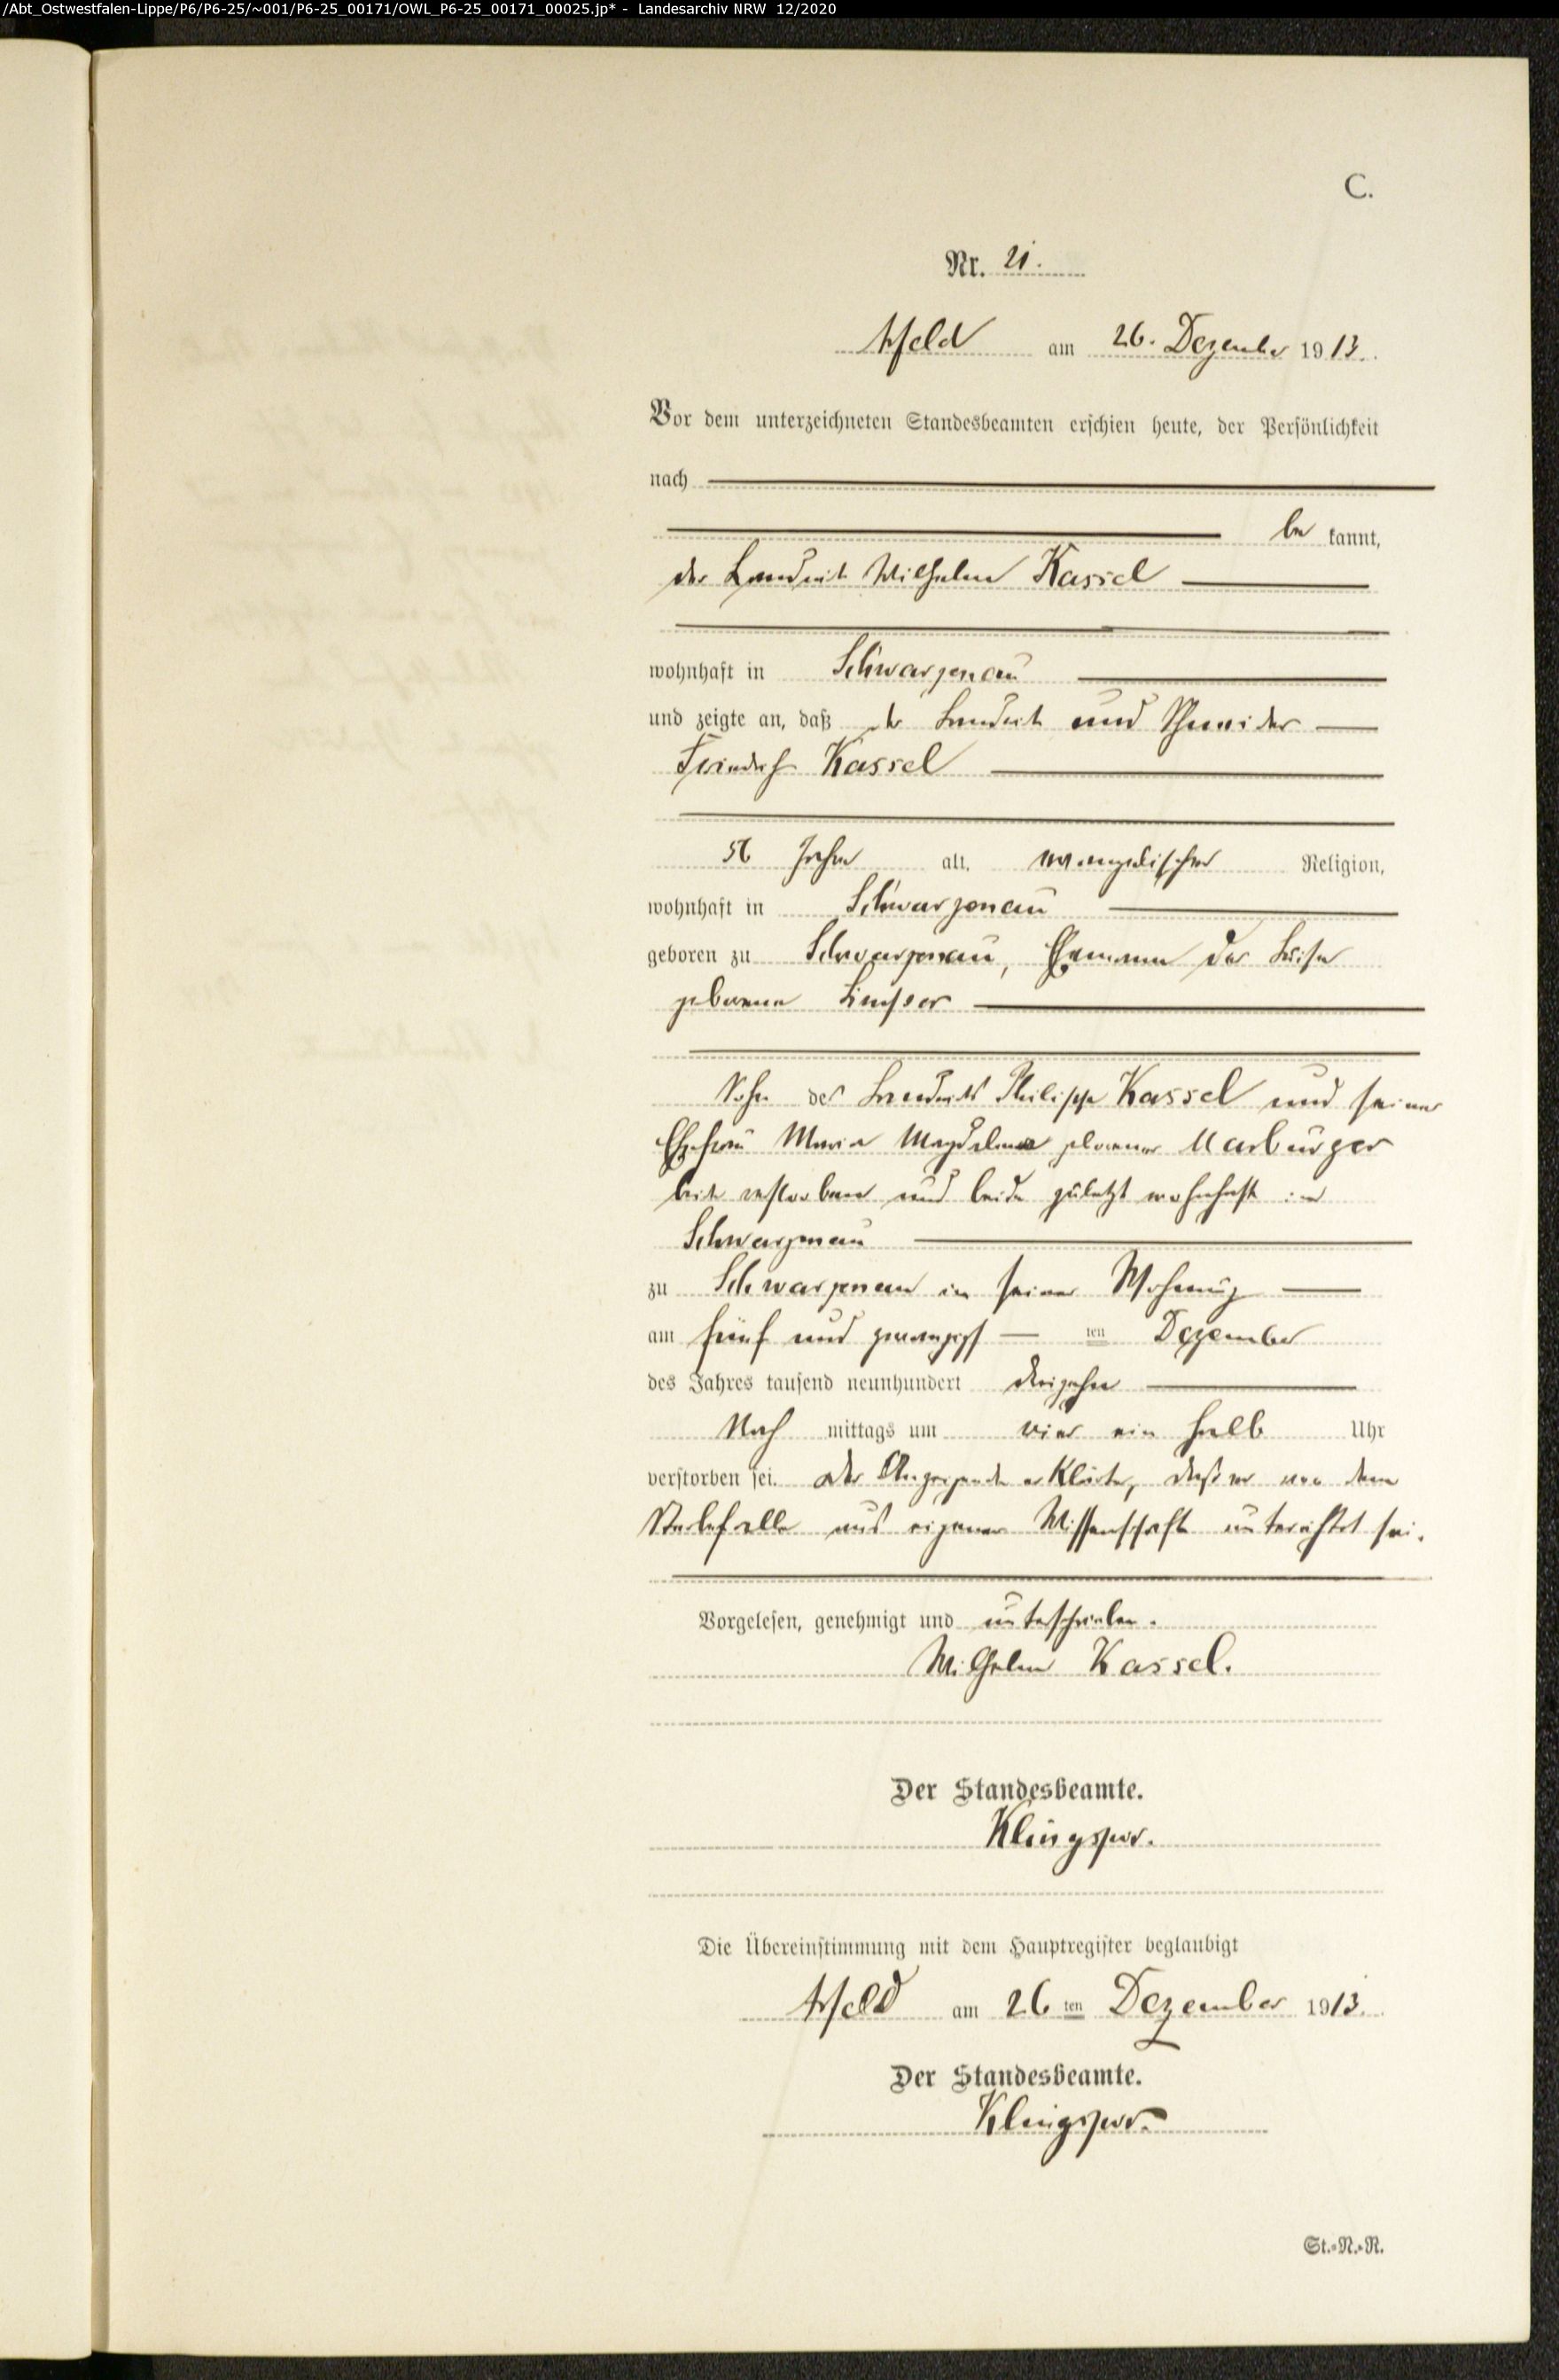 /Abt_Ostwestfalen-Lippe/P6/P6-25/~001/P6-25_00171/OWL_P6-25_00171_00025.jp* - Landesarchiv NRW 12/2020
C.
Nr. 21.
Arfeld am 26. Dezember 1913.
Vor dem unterzeichneten Standesbeamten erschien heute, der Persönlichkeit
nach
be kannt,
der Landwirt Wilhelm Kassel
wohnhaft in Schwarzenau
und zeigte an, daß der Landwirt und Schneider
Friedrich Kassel
56 Jahre alt, evangelischer Religion,
wohnhaft in Schwarzenau
geboren zu Schwarzenau, Ehemann der Luise
geborene
Sohn des Landwirts Philipp Kassel und seiner
Ehefrau Maria Magdalena geborener Marburger
beide verstorben und beide zuletzt wohnhaft in
Schwarzenau
zu Schwarzenau in seiner Wohnung
am fünf und zwanzigst ten Dezember
des Jahres tausend neunhundert dreizehn
Nach mittags um vier ein halb Uhr
verstorben sei. Der Anzeigende erklärte, daß er von dem
Sterbefalle aus eigener Wissenschaft unterrichtet sei.
Vorgelesen, genehmigt und unterschrieben.
Wilhelm Kassel.
Der Standesbeamte.
Klingspor.
Die Übereinstimmung mit dem Hauptregister beglaubigt
Arfeld am 26 ten Dezember 1913.
Der Standesbeamte.
Klingspor.
St.-N.-R.